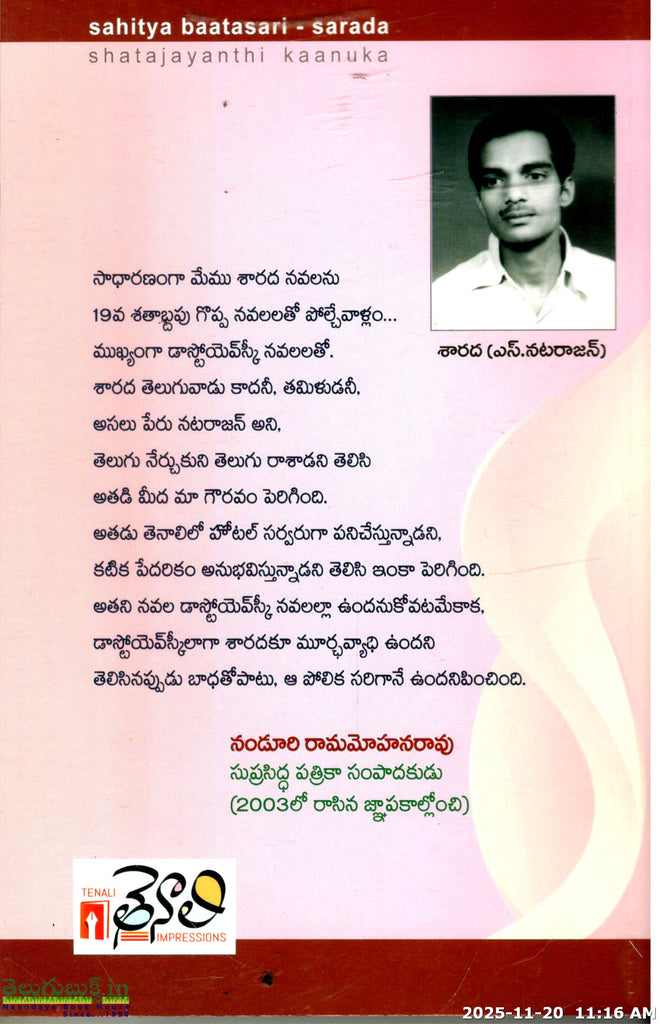 sahitya baatasari - sarada
shatajayanthi kaanuka
సాధారణంగా మేము శారద నవలను
19వ శతాబ్దపు గొప్ప నవలలతో పోల్చేవాళ్లం...
ముఖ్యంగా డాస్టోయెవ్‌స్కీ నవలలతో.
శారద (ఎస్.నటరాజన్)
శారద తెలుగువాడు కాదనీ, తమిళుడనీ,
అసలు పేరు నటరాజన్ అని,
తెలుగు నేర్చుకుని తెలుగు రాశాడని తెలిసి
అతడి మీద మా గౌరవం పెరిగింది.
అతడు తెనాలిలో హోటల్ సర్వరుగా పనిచేస్తున్నాడని,
కటిక పేదరికం అనుభవిస్తున్నాడని తెలిసి ఇంకా పెరిగింది.
అతని నవల డాస్టోయెవ్‌స్కీ నవలల్లా ఉందనుకోవటమేకాక,
డాస్టోయెవ్‌స్కీలాగా శారదకూ మూర్ఛవ్యాధి ఉందని
తెలిసినప్పుడు బాధతోపాటు, ఆ పోలిక సరిగానే ఉందనిపించింది.
నండూరి రామమోహనరావు
సుప్రసిద్ధ పత్రికా సంపాదకుడు
(2003లో రాసిన జ్ఞాపకాల్లోంచి)
TENALI
తెనాలి
IMPRESSIONS
తెలుగుబుక్.in
Navodaya Book House
Since...1990
2025-11-20 11:16 AM